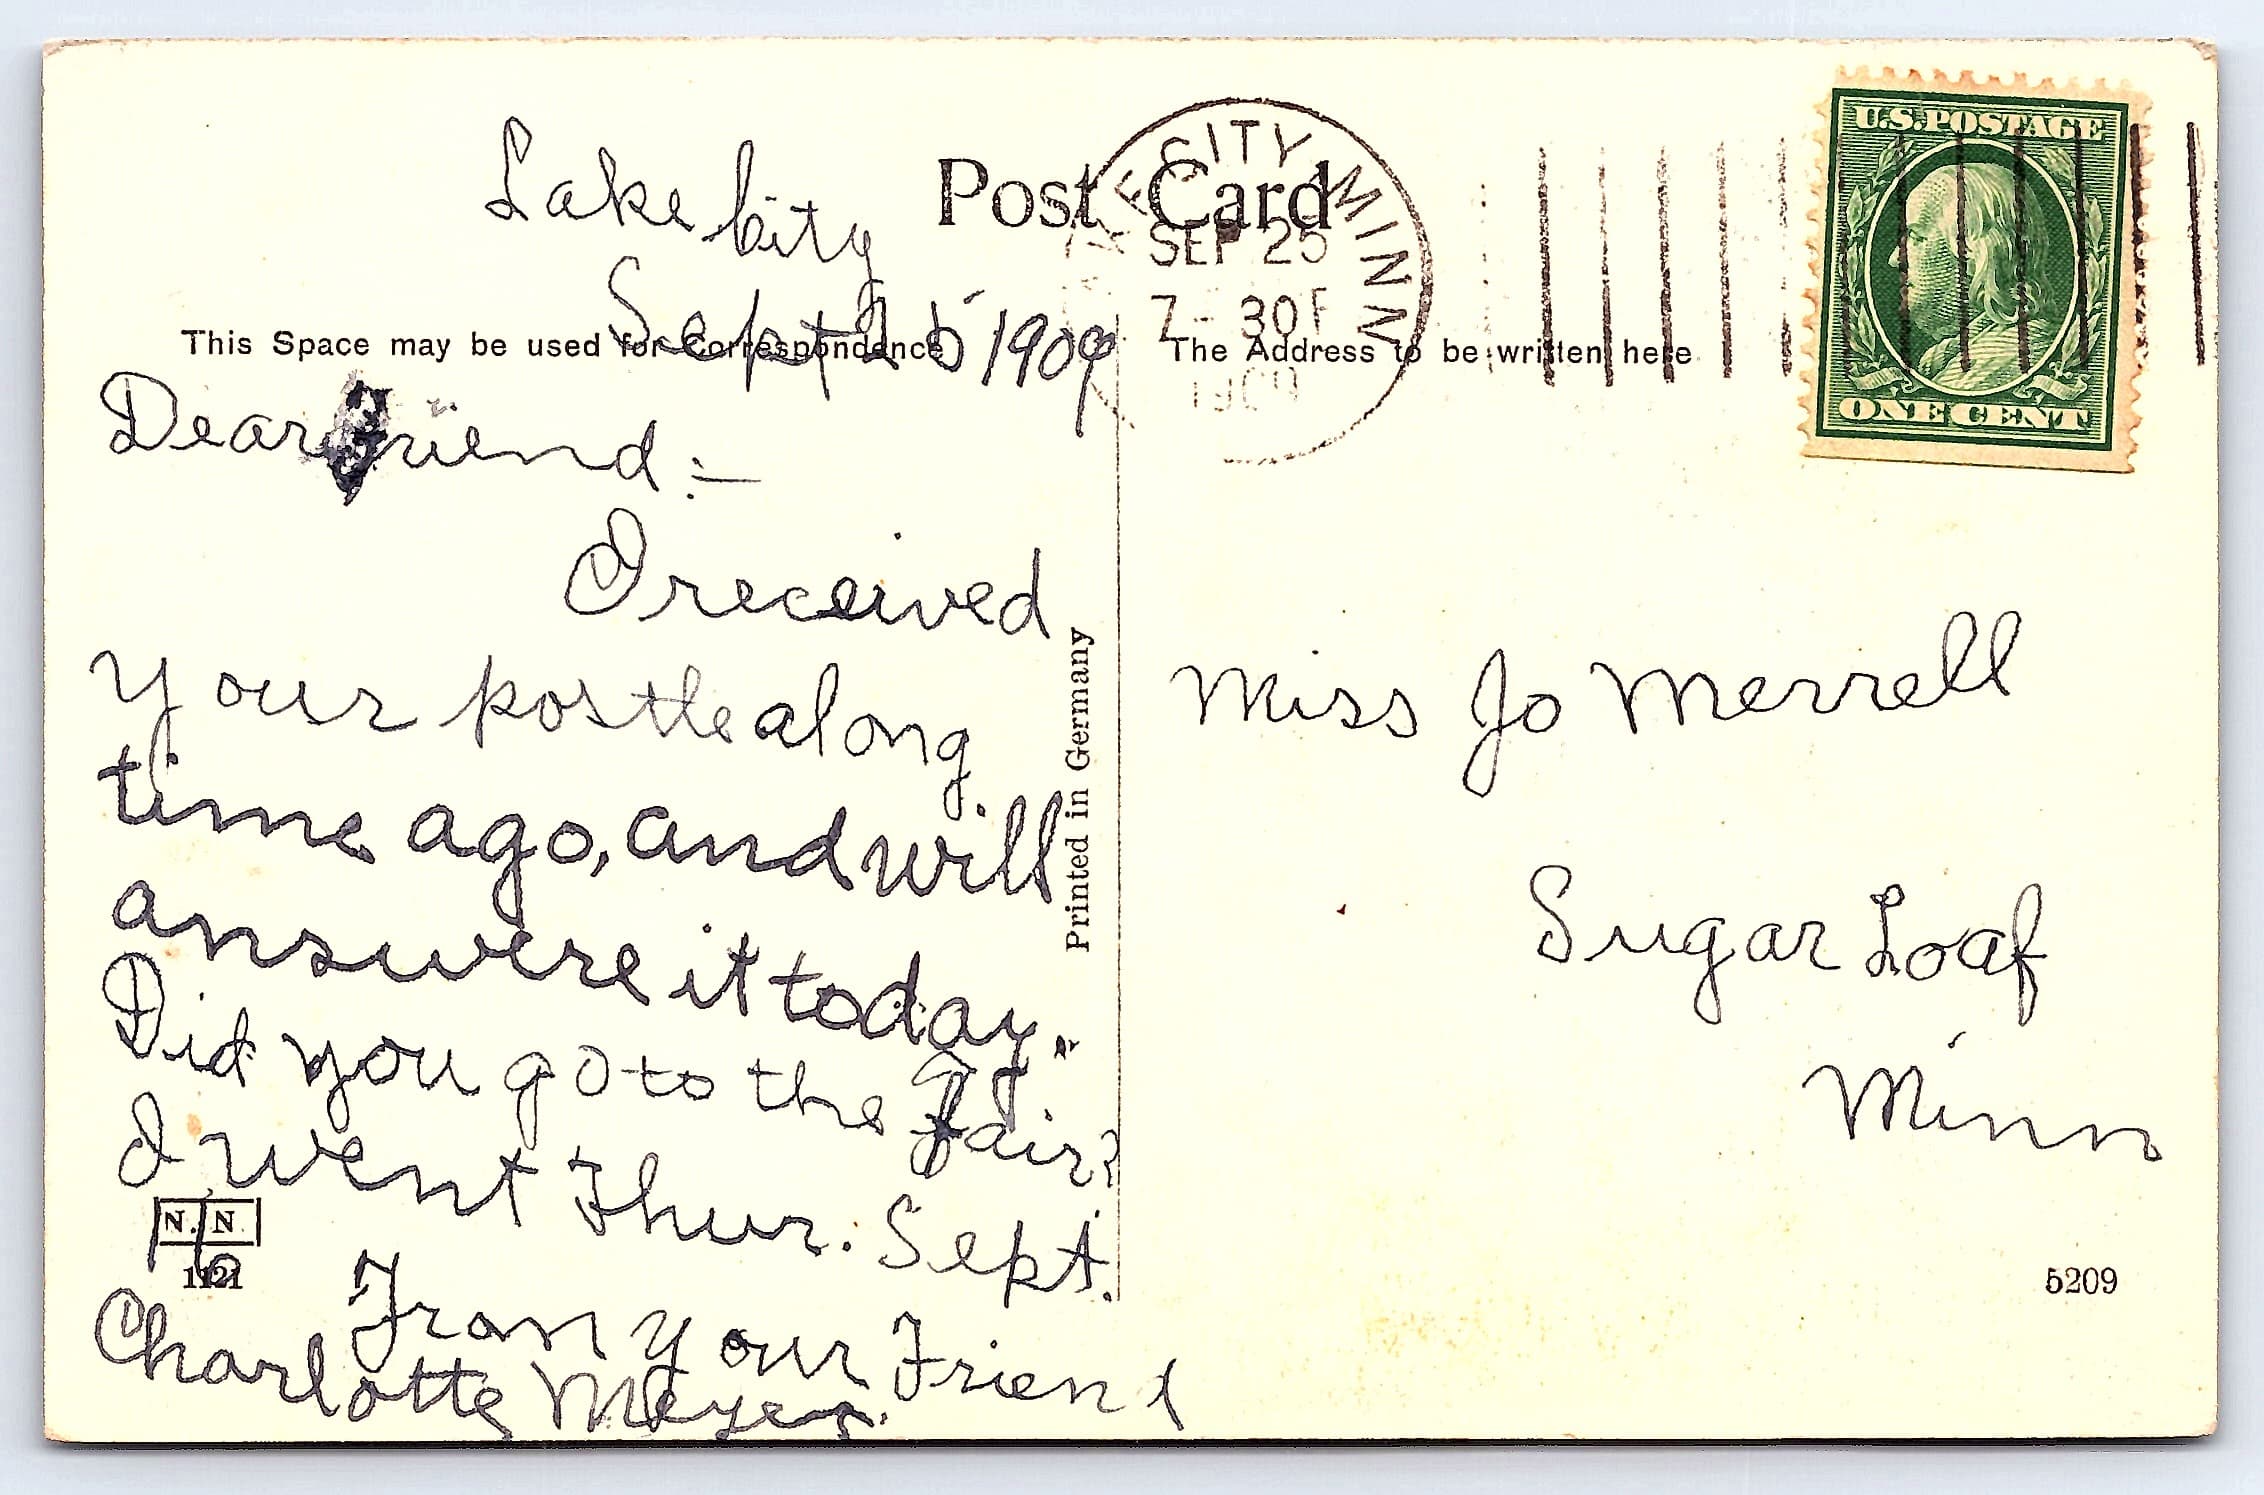 Lake City
Sept 25 1909
Post Card
This Space may be used for Correspondence
Dear Friend :—
I received
your postle along
time ago, and will
answere it today.
Did you go to the Fair?
I went Thur. Sept.
16
From your Friend
Charlotte Meyer.
N. N
1121
Printed in Germany
CITY, MINN
SEP 25
7- 30 P
1909
U.S. POSTAGE
ONE CENT
The Address to be written here
Miss Jo Merrell
Sugar Loaf
Minn
5209